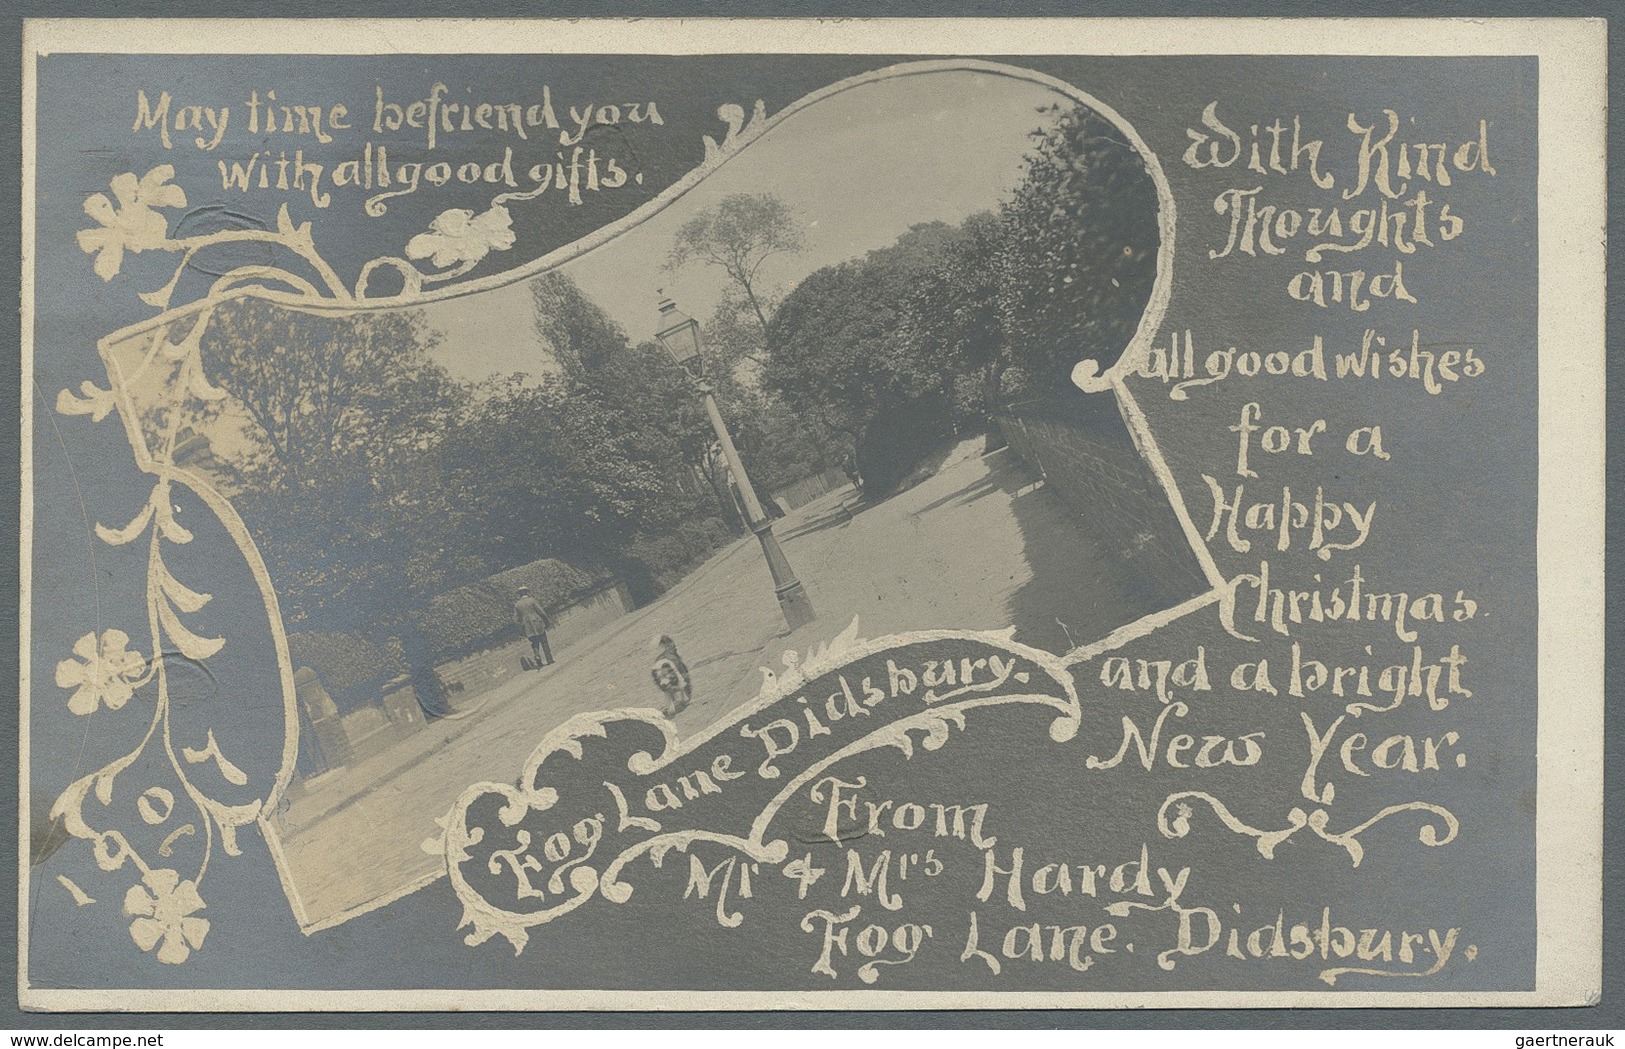 May time befriend you
with all good gifts.
With Kind
Thoughts
and
all good wishes
for a
Happy
Christmas
and a bright
New Year.
Fog Lane Didsbury.
From
Mr & Mrs Hardy
Fog Lane. Didsbury.
delcampe.net
gaertnerauk